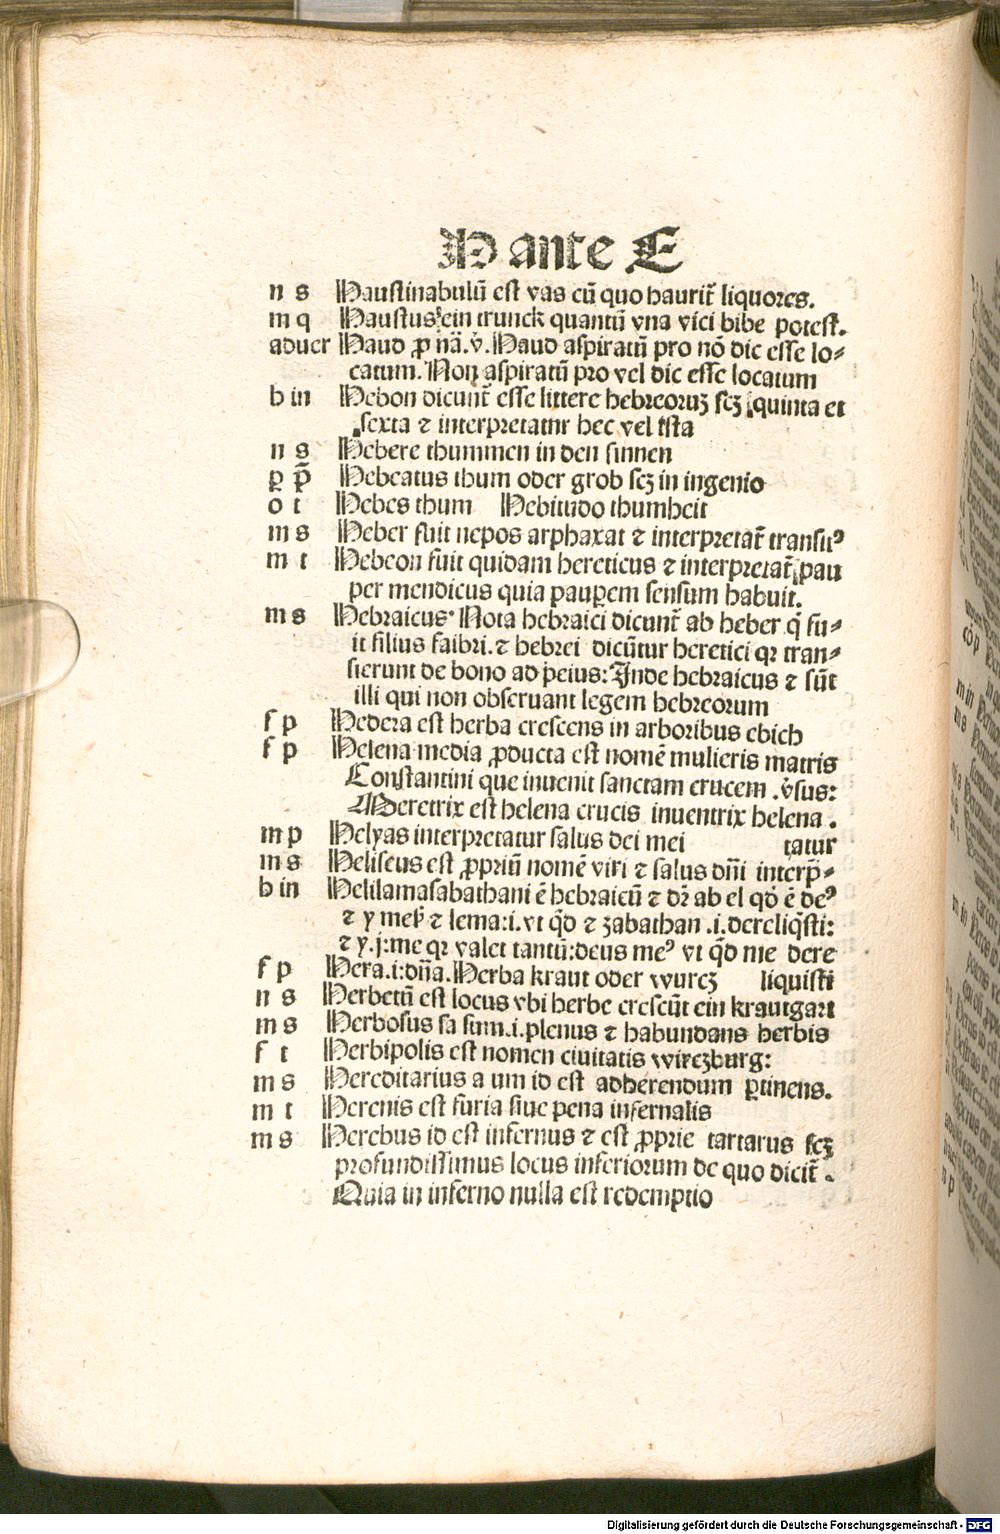 H ante E
n s Haustinabulū est vas cū quo haurit̄ liquores.
m q Haustus ein trunck quantū vna vici bibe potest.
aduer Haud ꝓ nā. v̄. Haud aspiratū pro nō dic esse lo⸗
catum. Non aspiratū pro vel dic esse locatum
b in Hebon dicunt̄ esse littere hebreoruꝫ scꝫ quinta et
sexta ⁊ interpretatur hec vel ista
n s Hebere thummen in den sinnen
ꝑ p̄ Hebeatus thum oder grob scꝫ in ingenio
o t Hebes thum Hebitudo thumheit
m s Heber fuit nepos arphaxat ⁊ interpretat̄ transitꝰ
m t Hebeon fuit quidam hereticus ⁊ interpretat̄ pau
per mendicus quia pauꝑem sensum habuit.
m s Hebraicus Nota hebraici dicunt̄ ab heber q̄ fu⸗
it filius faibri. ⁊ hebrei dicūtur heretici qꝛ tran⸗
sierunt de bono ad peius: Inde hebraicus ⁊ sūt
illi qui non obseruant legem hebreorum
f p Hedera est herba crescens in arboribus ebich
f p Helena media ꝓducta est nomē mulieris matris
Constantini que inuenit sanctam crucem .v̄sus:
Meretrix est helena crucis inuentrix helena .
m p Helyas interpretatur salus dei mei tatur
m s Heliseus est ꝓpriū nomē viri ⁊ salus dn̄i interp̄⸗
b in Helilamasabathani ē hebraicū ⁊ dr̄ ab el qd̄ ē deꝰ
⁊ y meꝰ ⁊ lema:i. vt qd̄ ⁊ zabathan .i. dereliq̄sti:
⁊ y. j:me qꝛ valet tantū:deus meꝰ vt qd̄ me dere
f p Hera.i:dn̄a. Herba kraut oder wurcꝫ liquisti
n s Herbetū est locus vbi herbe crescūt ein krautgart
m s Herbosus sa sum.i. plenus ⁊ habundans herbis
f t Herbipolis est nomen ciuitatis wirczburg:
m s Hereditarius a um id est adherendum ꝑtinens.
m t Herenis est furia siue pena infernalis
m s Herebus id est infernus ⁊ est ꝓprie tartarus scꝫ
profundissimus locus inferiorum de quo dicit̄ .
Quia in inferno nulla est redemptio
Digitalisierung gefördert durch die Deutsche Forschungsgemeinschaft - DFG